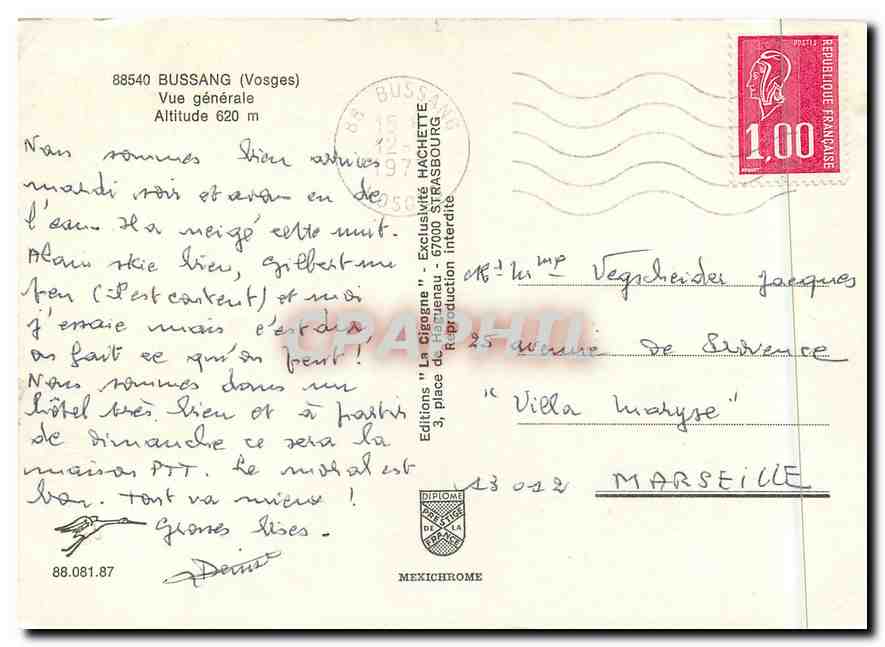 88540 BUSSANG (Vosges)
Vue générale
Altitude 620 m
Nous sommes bien arrivés
mardi soir et avons eu de
l'eau. Il a neigé cette nuit.
Alain skie bien, Gilbert un
peu (il est content) et moi
j'essaie mais c'est dur
on fait ce qu'on peut!
Nous sommes dans un
hôtel très bien et à partir
de dimanche ce sera la
maison PTT. Le moral est
bon. Tout va mieux!
Grosses bises.
Denise
88.081.87
Editions "La Cigogne" - Exclusivité HACHETTE
3, place de Haguenau - 67000 STRASBOURG
Reproduction interdite
DIPLOME
PRESTIGE
DE LA
FRANCE
MEXICHROME
88 BUSSANG
15
12
197
VOSGES
POSTES
REPUBLIQUE FRANÇAISE
1,00
Mr et Mme Vegscheider Jacques
25 avenue de Provence
"Villa Maryse"
13012 MARSEILLE
CPAPHIL